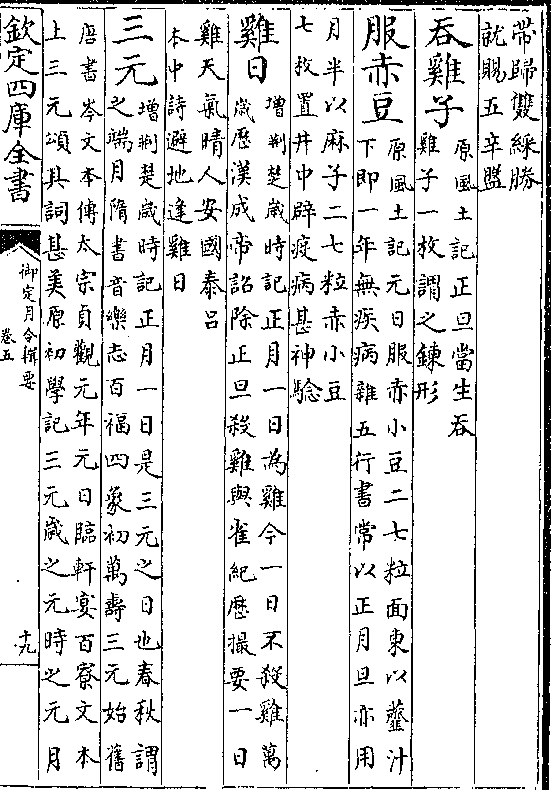 帶歸雙綵勝
就賜五辛盤
吞雞子
原風土記正旦當生吞
雞子一枚謂之鍊形
服赤豆
原風土記元日服赤小豆二七粒面東以虀汁
下即一年無疾病雜五行書常以正月旦亦用
月半以麻子二七粒赤小豆
七枚置井中辟疫病甚神驗
雞日
增荆楚歲時記正月一日為雞今一日不殺雞萬
歲歴漢成帝詔除正旦殺雞與雀紀歴撮要一日
雞天氣晴人安國泰吕
本中詩避地逢雞日
三元
增荆楚歲時記正月一日是三元之日也春秋謂
之端月隋書音樂志百福四象初萬壽三元始舊
唐書岑文本傳太宗貞觀元年元日臨軒宴百寮文本
上三元頌其詞甚美原初學記三元歲之元時之元月
欽定四庫全書
御定月令輯要
卷五
十九